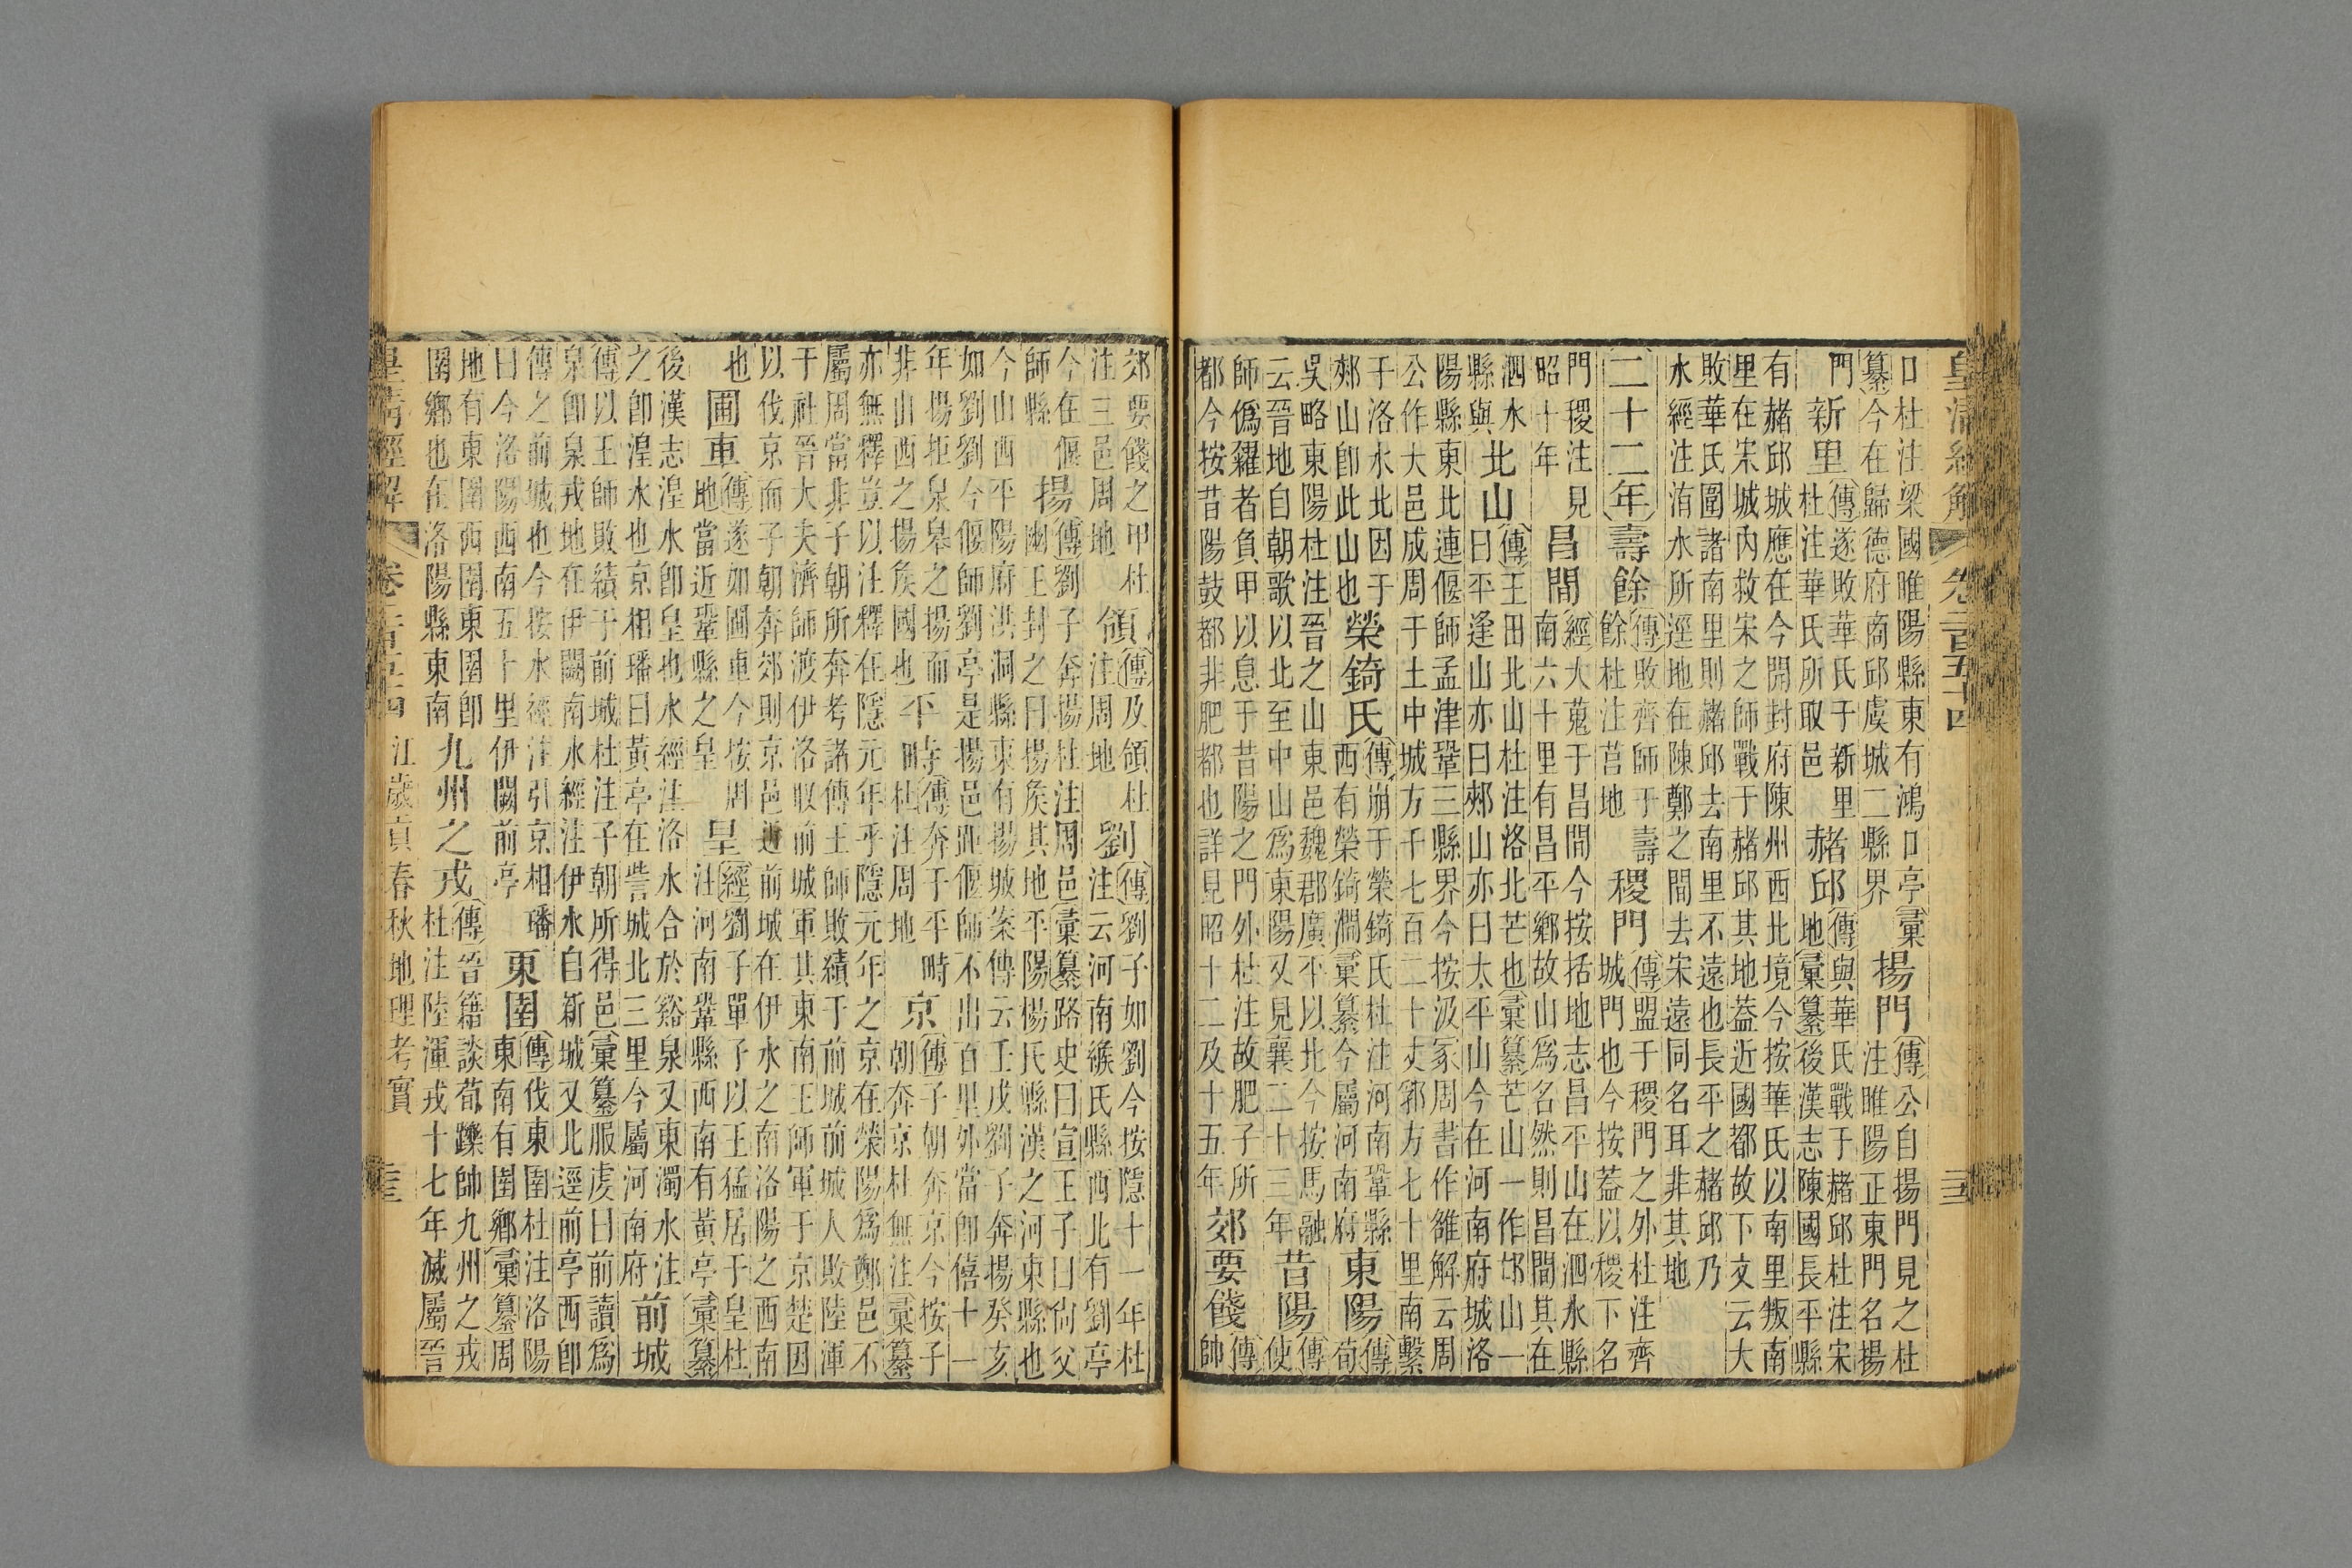 皇清經解 卷二百五十四 三
口杜注梁國睢陽縣東有鴻口亭彙
纂今在歸德府商邱虞城二縣界
揚門
傳公自揚門見之杜
注睢陽正東門名揚
門
新里
傳遂敗華氏于新里
杜注華氏所取邑
赭邱
傳與華氏戰于赭邱杜注宋
地彙纂後漢志陳國長平縣
有赭邱城應在今開封府陳州西北境今按華氏以南里叛南
里在宋城內救宋之師戰于赭邱其地蓋近國都故下文云大
敗華氏圍諸南里則赭邱去南里不遠也長平之赭邱乃
水經注洧水所逕地在陳鄭之間去宋遠同名耳非其地
二十二年
壽餘
傳敗齊師于壽
餘杜注莒地
稷門
傳盟于稷門之外杜注齊
城門也今按蓋以稷下名
門稷注見
昭十年
昌間
經大蒐于昌間今按括地志昌平山在泗水縣
南六十里有昌平鄉故山為名然則昌間其在
泗水
縣與
北山
傳王田北山杜注洛北芒也彙纂芒山一作邙山一
曰平逢山亦曰郟山亦曰太平山今在河南府城洛
陽縣東北連偃師孟津鞏三縣界今按汲冢周書作雒解云周
公作大邑成周于土中城方千七百二十丈郛方七十里南繫
于洛水北因于
郟山卽此山也
榮錡氏
傳崩于榮錡氏杜注河南鞏縣
西有榮錡澗彙纂今屬河南府
東陽
傳
荀
吳略東陽杜注晉之山東邑魏郡廣平以北今按馬融
云晉地自朝歌以北至中山爲東陽又見襄二十三年
昔陽
傳
使
師僞糴者負甲以息于昔陽之門外杜注故肥子所
都今按昔陽鼓都非肥都也詳見昭十二及十五年
郊要餞
傳
帥
郊要餞之甲杜
注三邑周地
領
傳及領杜
注周地
劉
傳劉子如劉今按隱十一年杜
注云河南緱氏縣西北有劉亭
今在偃
師縣
揚
傳劉子奔揚杜注周邑彙纂路史曰宣王子曰尙父
幽王封之曰揚矦其地平陽楊氏縣漢之河東縣也
今山西平陽府洪洞縣東有揚城案傳云壬戌劉子奔揚癸亥
如劉劉今偃師劉亭是揚邑距偃師不出百里外當卽僖十一
年揚拒泉皋之揚而
非山西之揚矦國也
平畤
傳奔于平畤
杜注周地
京
傳子朝奔京今按子
朝奔京杜無注彙纂
亦無釋豈以注釋在隱元年乎隱元年之京在滎陽爲鄭邑不
屬周當非子朝所奔考諸傳王師敗績于前城前城人敗陸渾
于社晉大夫濟師渡伊洛取前城軍其東南王師軍于京楚因
以伐京而子朝奔郊則京邑近前城在伊水之南洛陽之西南
也
圃車
傳遂如圃車今按周
地當近鞏縣之皇
皇
經劉子單子以王猛居于皇杜
注河南鞏縣西南有黃亭彙纂
後漢志湟水卽皇也水經注洛水合於谿泉又東濁水注
之卽湟水也京相璠曰黃亭在訾城北三里今屬河南府
前城
傳以王師敗績于前城杜注子朝所得邑彙纂服虔曰前讀爲
泉卽泉戎地在伊闕南水經注伊水自新城又北逕前亭西卽
傳之前城也今按水經注引京相璠
曰今洛陽西南五十里伊闕前亭
東圉
傳伐東圉杜注洛陽
東南有圉鄉彙纂周
地有東圉西圉東圉卽
圉鄉也在洛陽縣東南
九州之戎
傳晉籍談荀躒帥九州之戎
杜注陸渾戎十七年滅屬晉
皇清經解 卷二百五十四 江歲貢春秋地理考實